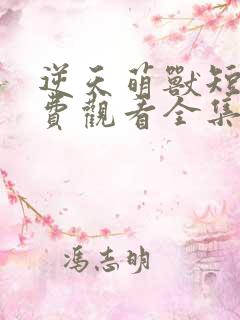 逆天萌獸短
費觀看全集
馮志明